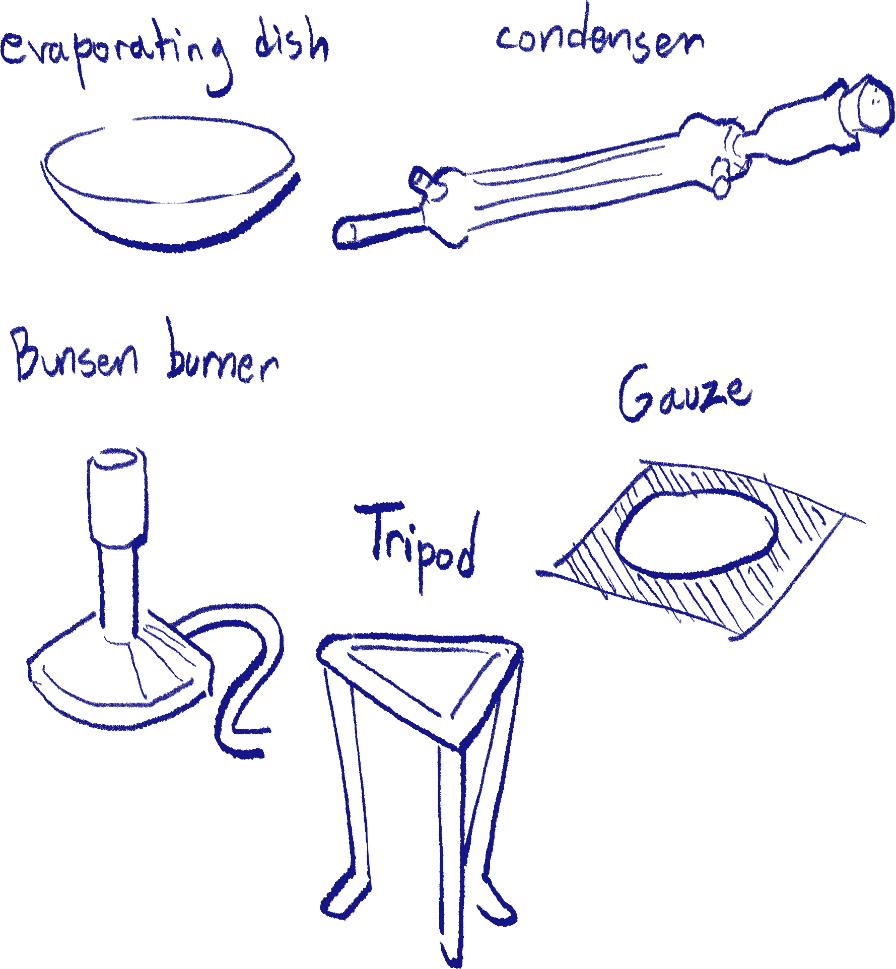 evaporating dish
condenser
Bunsen burner
Gauze
Tripod